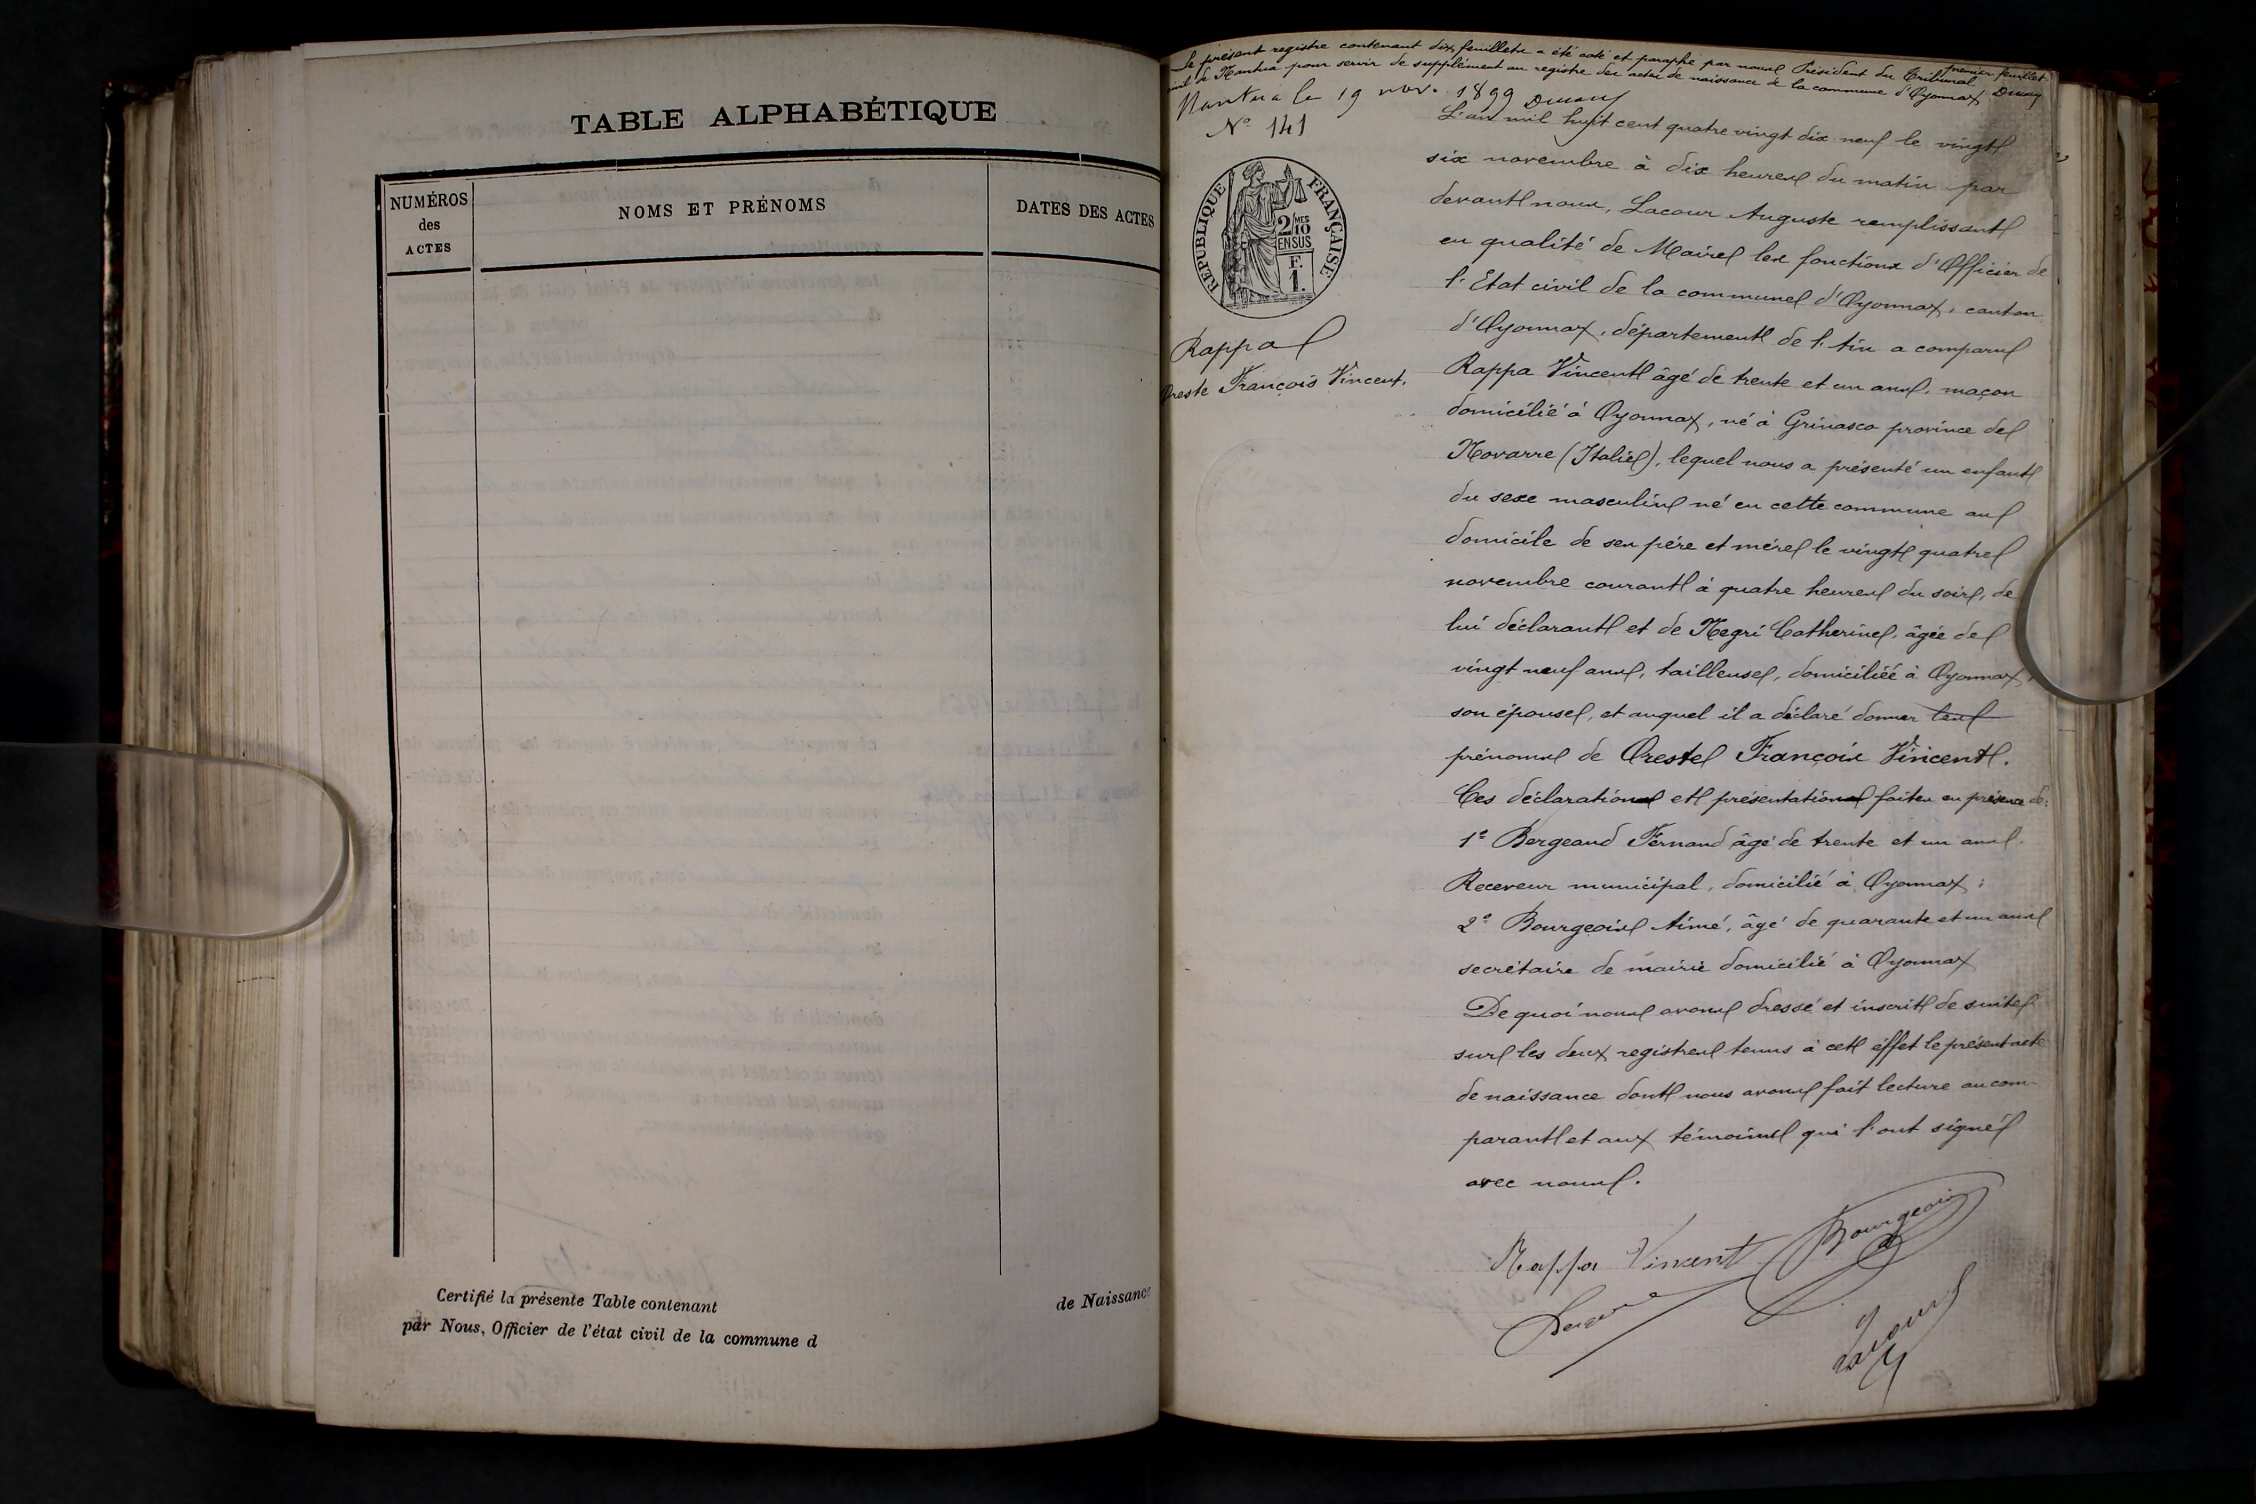 TABLE ALPHABÉTIQUE
NUMÉROS
des
ACTES
NOMS ET PRÉNOMS
DATES DES ACTES
Certifié la présente Table contenant
de Naissance
par Nous, Officier de l'état civil de la commune d
premier feuillet
Le présent registre contenant dix feuillets a été coté et paraphé par nous Président du Tribunal
civil de Nantua pour servir de supplément au registre des actes de naissance de la commune d'Oyonnax
Nantua le 19 nov. 1899
N° 141
RÉPUBLIQUE FRANÇAISE
2/10 MES
EN SUS
F.
1.
Rappa
Oreste François Vincent.
L'an mil huit cent quatre vingt dix neuf le vingt
six novembre à dix heures du matin par
devant nous, Lacour Auguste remplissant
en qualité de Maire les fonctions d'Officier de
l'Etat civil de la commune d'Oyonnax, canton
d'Oyonnax, département de l'Ain a comparu
Rappa Vincent âgé de trente et un ans, maçon
domicilié à Oyonnax, né à Grinasco province de
Novarre (Italie), lequel nous a présenté un enfant
du sexe masculin né en cette commune au
domicile de ses père et mère le vingt quatre
novembre courant à quatre heures du soir, de
lui déclarant et de Negri Catherine, âgée de
vingt neuf ans, tailleuse, domiciliée à Oyonnax,
son épouse, et auquel il a déclaré donner les
prénoms de Oreste François Vincent.
Ces déclaration et présentation faites en présence de:
1° Bergeaud Fernand âgé de trente et un ans.
Receveur municipal, domicilié à Oyonnax;
2° Bourgeois Aimé, âgé de quarante et un ans
secrétaire de mairie domicilié à Oyonnax
De quoi nous avons dressé et inscrit de suite
sur les deux registres tenus à cet éffet le présent acte
de naissance dont nous avons fait lecture au com-
parant et aux témoins qui l'ont signé
avec nous.
Rappa Vincent
Bourgeois
Lacour